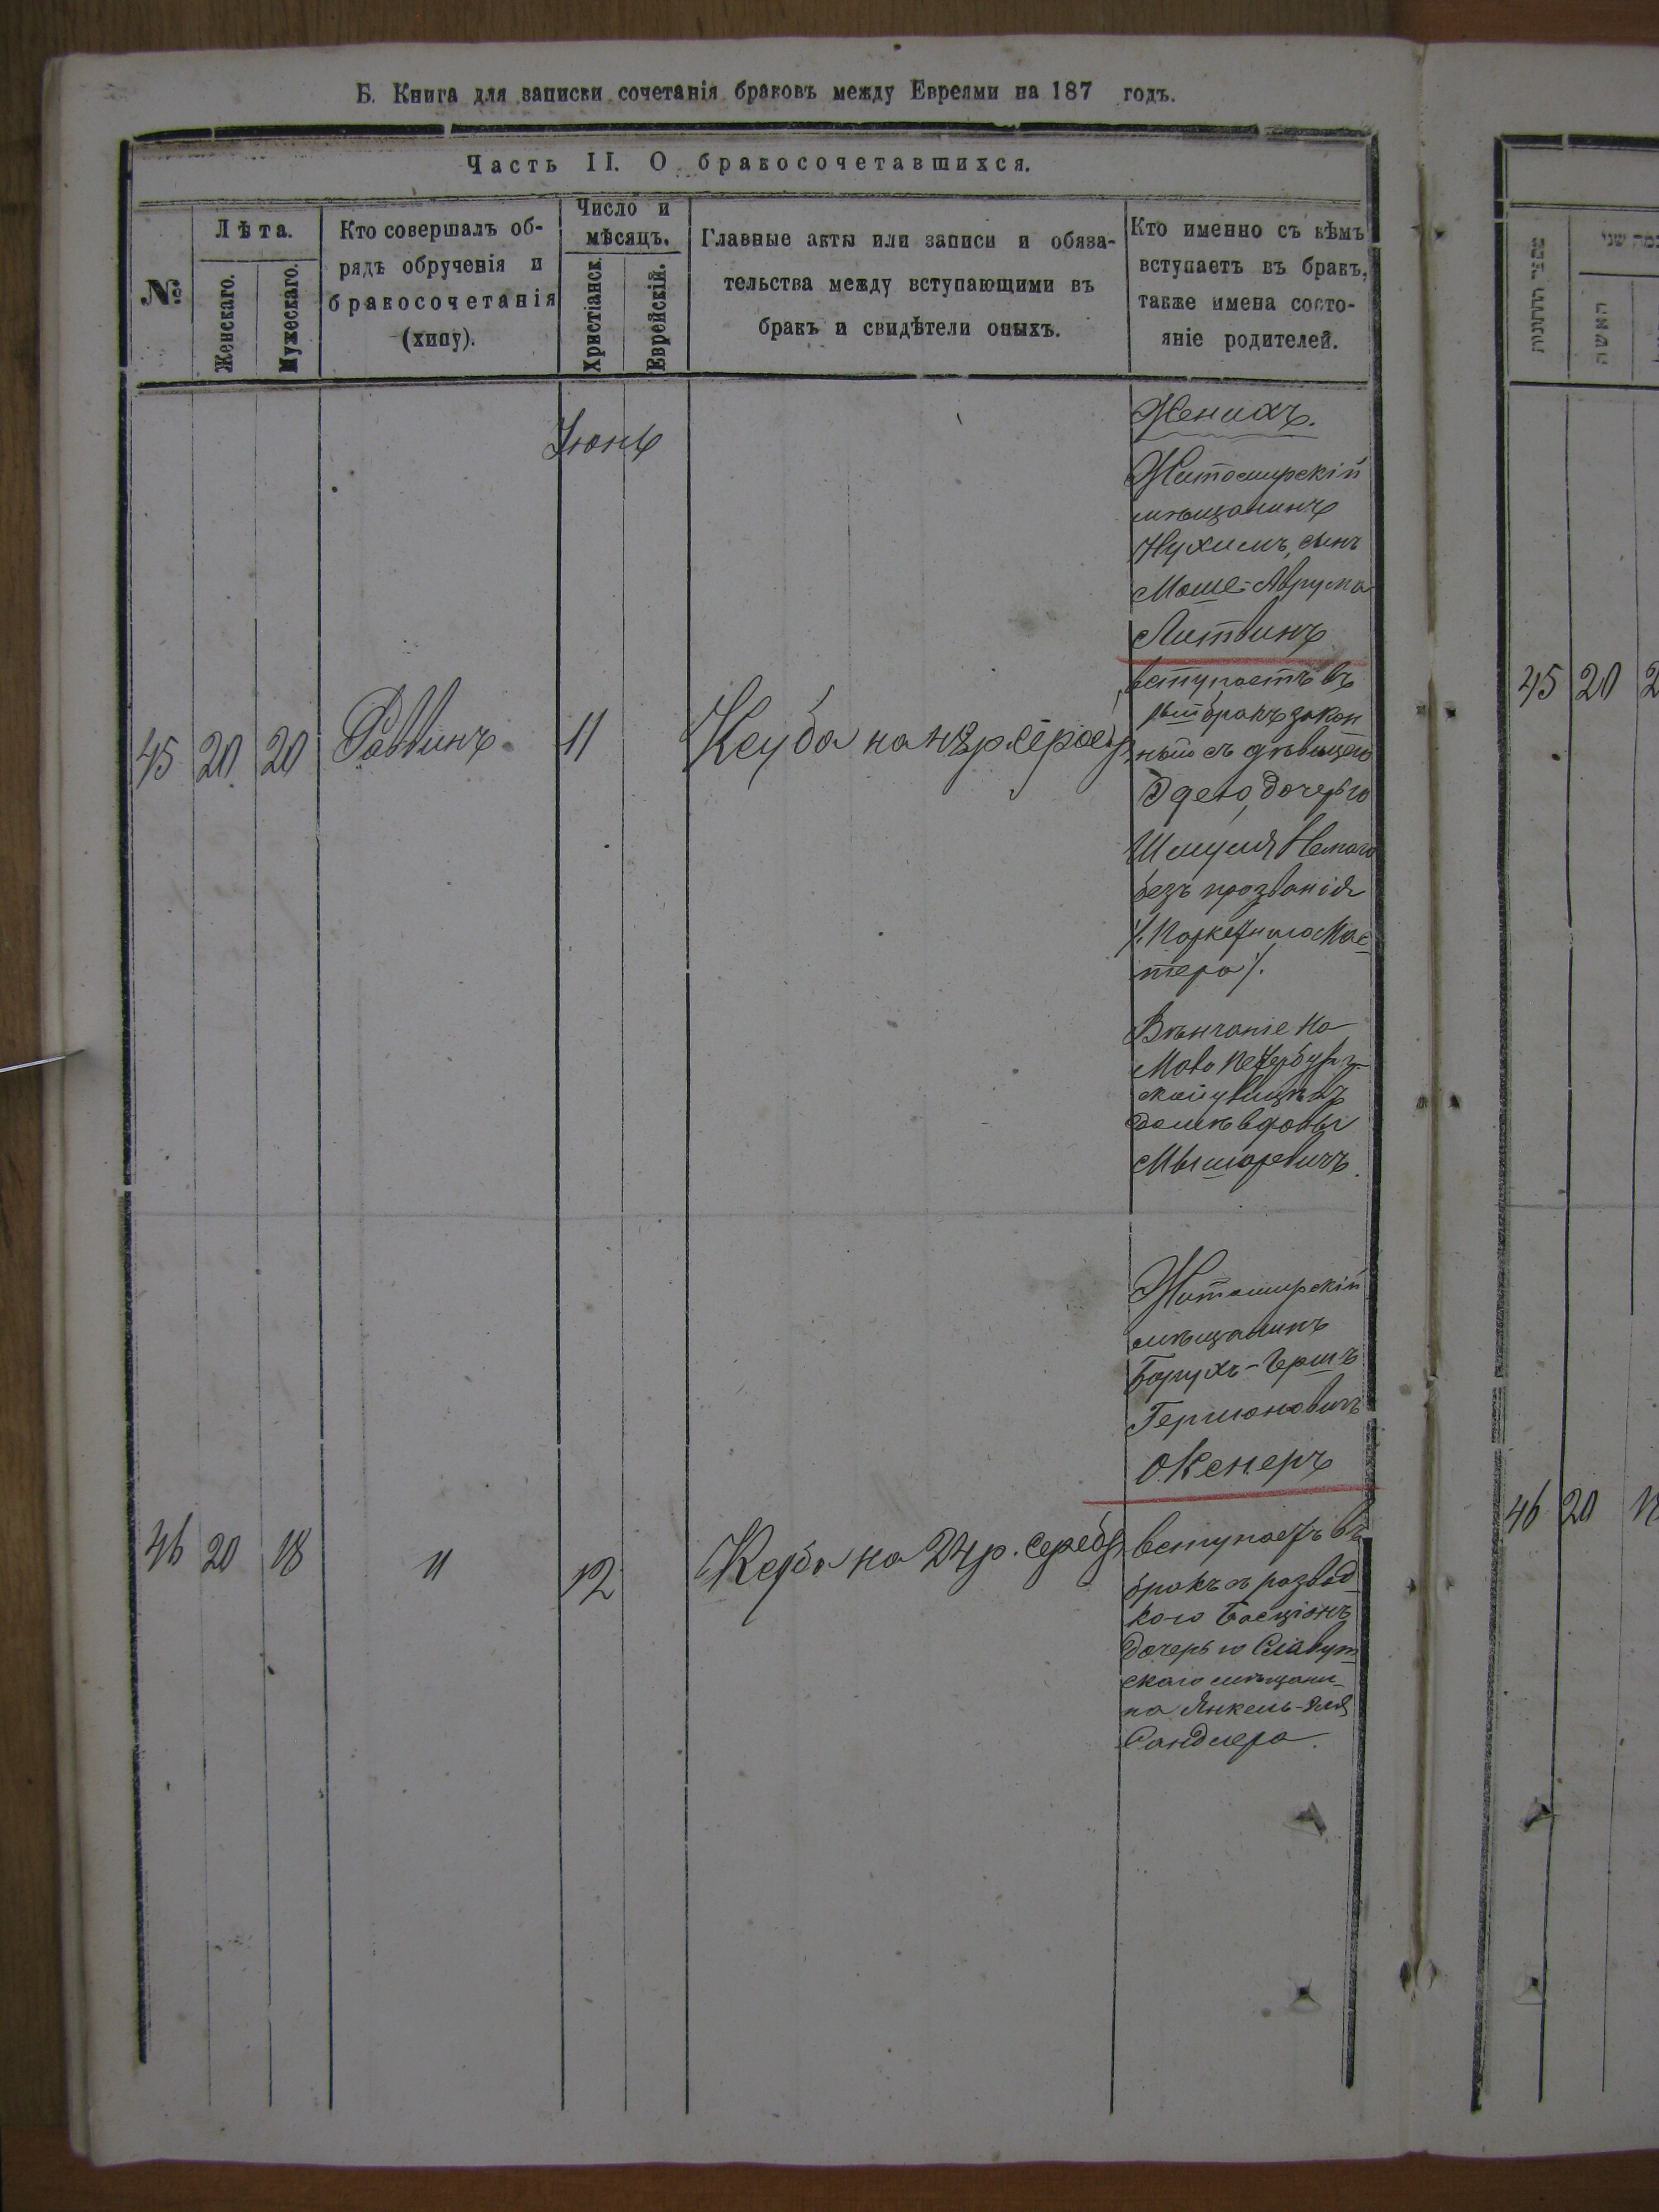 Б. Книга для записки сочетанія браковъ между Евреями на 187 годъ.
Часть II. О бракосочетавшихся.
№
Лѣта.
Женскаго.
Мужескаго.
Кто совершалъ об-
рядъ обрученія и
бракосочетанія
(хипу).
Число и
мѣсяцъ.
Христіанск.
Еврейскій.
Главные акты или записи и обяза-
тельства между вступающими въ
бракъ и свидѣтели оныхъ.
Кто именно съ кѣмъ
вступаетъ въ бракъ,
также имена состо-
яніе родителей.
Іюнь
45 20 20 Раввинъ 11
Женихъ.
Житомирскій
мѣщанинъ
Нухимъ, сынъ
Моше-Аврума
Литвинъ
вступаетъ въ
бракъ закон
ный съ дѣвицею
Эдею, дочерью
Шмуля
безъ прозванія
Паркетнаго Мас-
тера
Вѣнчаніе на
Мало Петербург-
ской улицѣ въ
домѣ вдовы
46 20 18 " 12 Кеуба на 24 р. серебр.
Житомирскій
мѣщанинъ
Борухъ-Гершъ
Гершоновичъ
Окснеръ
вступаетъ въ
бракъ съ развод
кою Басціонъ
дочерью Славут
скаго мѣщани-
на Янкель-
Сандлера.
45 20
46 20
האשה